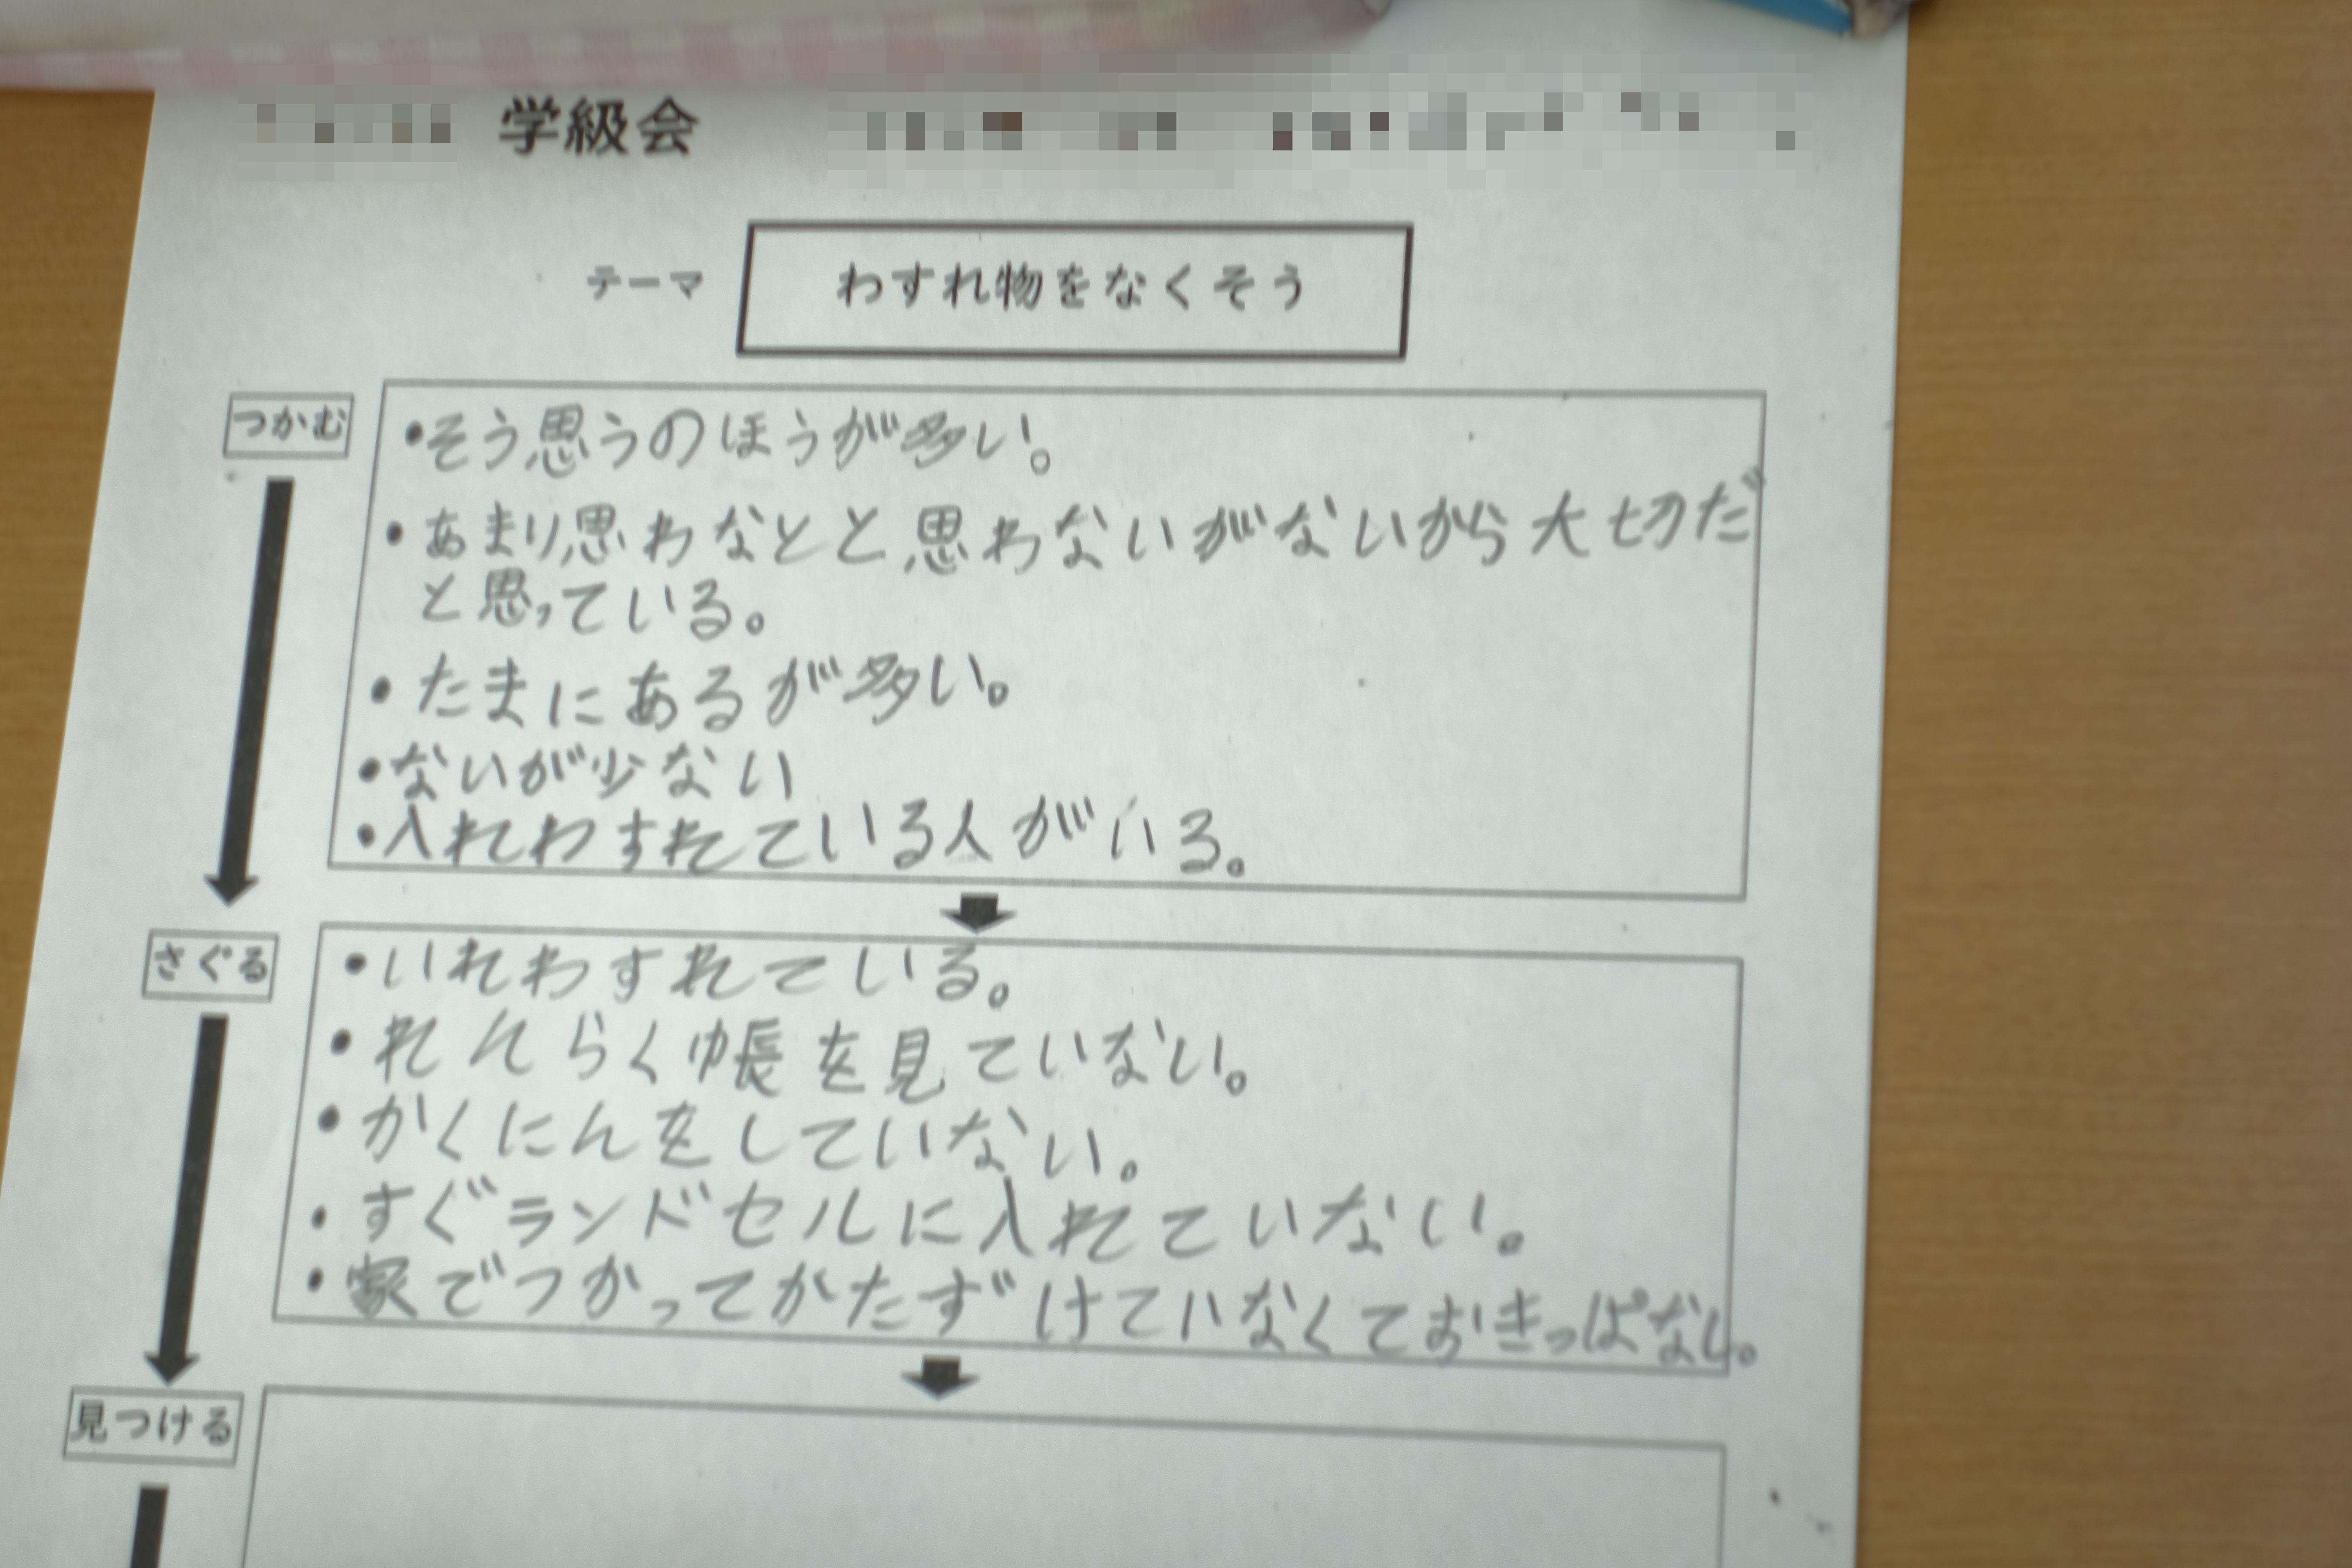 学級会
テーマ
わすれ物をなくそう
つかむ
・そう思うのほうが多い。
・あまり思わなとと思わないがないから大切だ
と思っている。
・たまにあるが多い。
・ないが少ない
・入れわすれている人がいる。
さぐる
・いれわすれている。
・れんらく帳を見ていない。
・かくにんをしていない。
・すぐランドセルに入れていない。
・家でつかってかたずけていなくておきっぱなし。
見つける